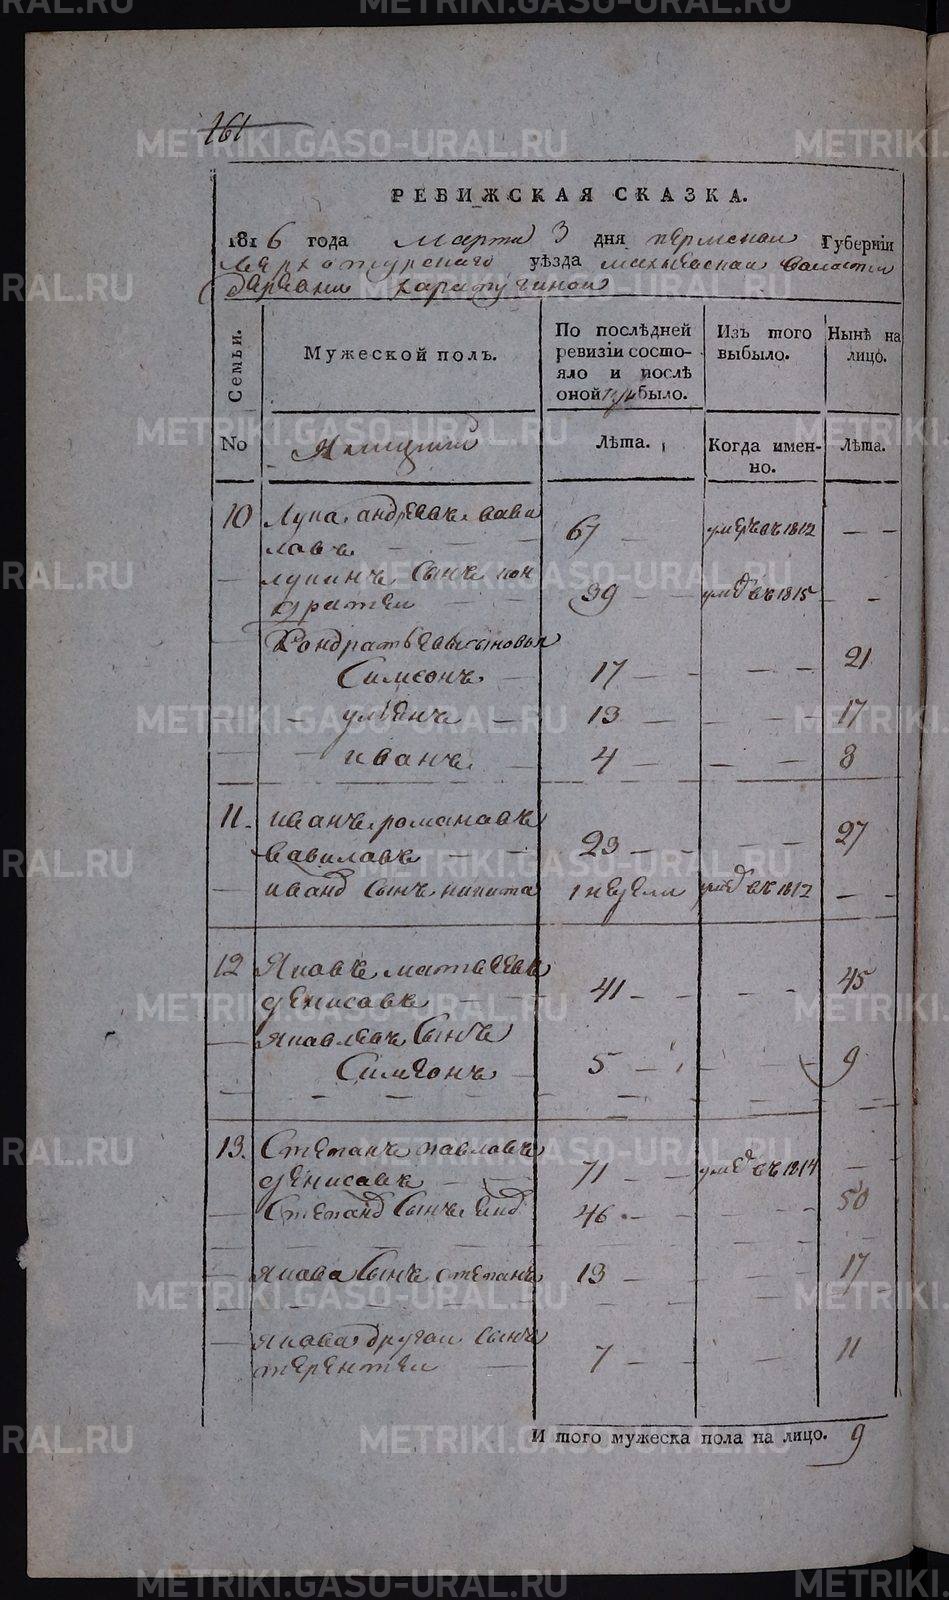 161
РЕВИЖСКАЯ СКАЗКА.
1816 года марта 3 дня пермской Губернiи
Верхотурскаго уѣзда махневской воласти
деревни каратугиной
Семьи.
Мужеской полъ.
По послѣдней
ревизiи состо-
яло и послѣ
оной прибыло.
Изъ того
выбыло.
Нынѣ на
лицо.
No
Ямщики
Лѣта.
Когда имен-
но.
Лѣта.
10 Лупа андреевъ вави
ловъ 67 умеръ въ 1812
лупинъ сынъ кон
дратей 39 умре въ 1815
Кондратьевы сыновья
Симеонъ 17 21
улианъ 13 17
иванъ 4 8
11. иванъ романовъ
вавиловъ 23 27
ивана сынъ никита 1 недели умре въ 1812
12 Яковъ матвеевъ
денисовъ 41 45
яковлевъ сынъ
Симеонъ 5 9
13. Степанъ павловъ
денисовъ 71 умре въ 1814
Степана сынъ 46 50
якова сынъ степанъ 13 17
якова другой сынъ
терентей 7 11
И того мужеска пола на лицо. 9
METRIKI.GASO-URAL.RU